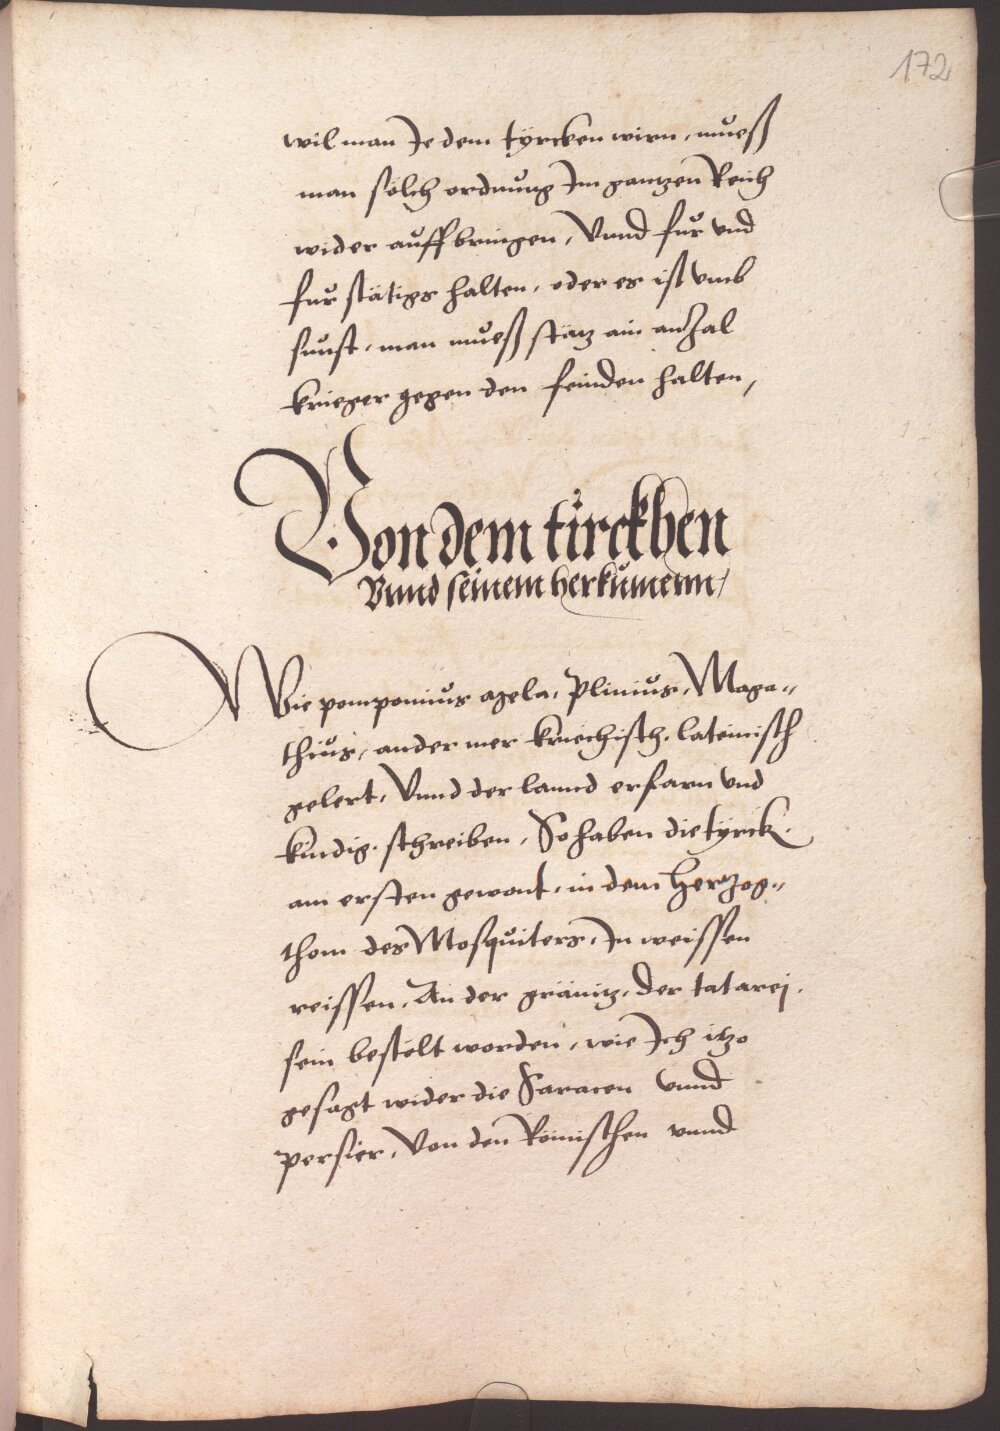 172
wil man Je dem tyrcken wirn, mueß
man sölch ordnung Im gantzen Reich
wider auffbringen, Vnnd fur vnd
fur stätigs halten, oder es ist vmb
sunst, man mueß stätz ain anzal
krieger gegen den feinden halten,
Von dem türckhen
Vnnd seinem herkumenn,
Wie pomponius agela, Plinius, Maga-
thius, ander mer kriechisch, lateinisch
gelert, Vnnd der lannd erfarn vnd
kundig, schreiben, So haben die tyrck.
am ersten gewont, in dem Hertzog-
thom des Mosquiters, In weissen
reissen, An der gränitz, der tatarej.
sein bestelt worden, wie Ich itzo
gesagt wider die Saracen vnnd
persier, Von den Römischen vnnd